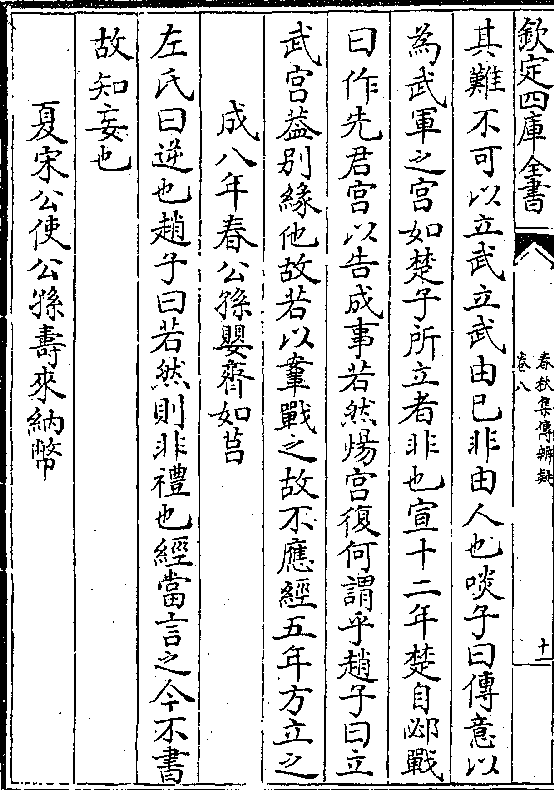 欽定四庫全書
春秋集傳辨疑
卷八
十一
其難不可以立武立武由已非由人也啖子曰傳意以
為武軍之宫如楚子所立者非也宣十二年楚自邲戰
曰作先君宫以告成事若然煬宫復何謂乎趙子曰立
武宫葢别緣他故若以鞌戰之故不應經五年方立之
成八年春公孫嬰齊如莒
左氏曰逆也趙子曰若然則非禮也經當言之今不書
故知妄也
夏宋公使公孫壽來納幣